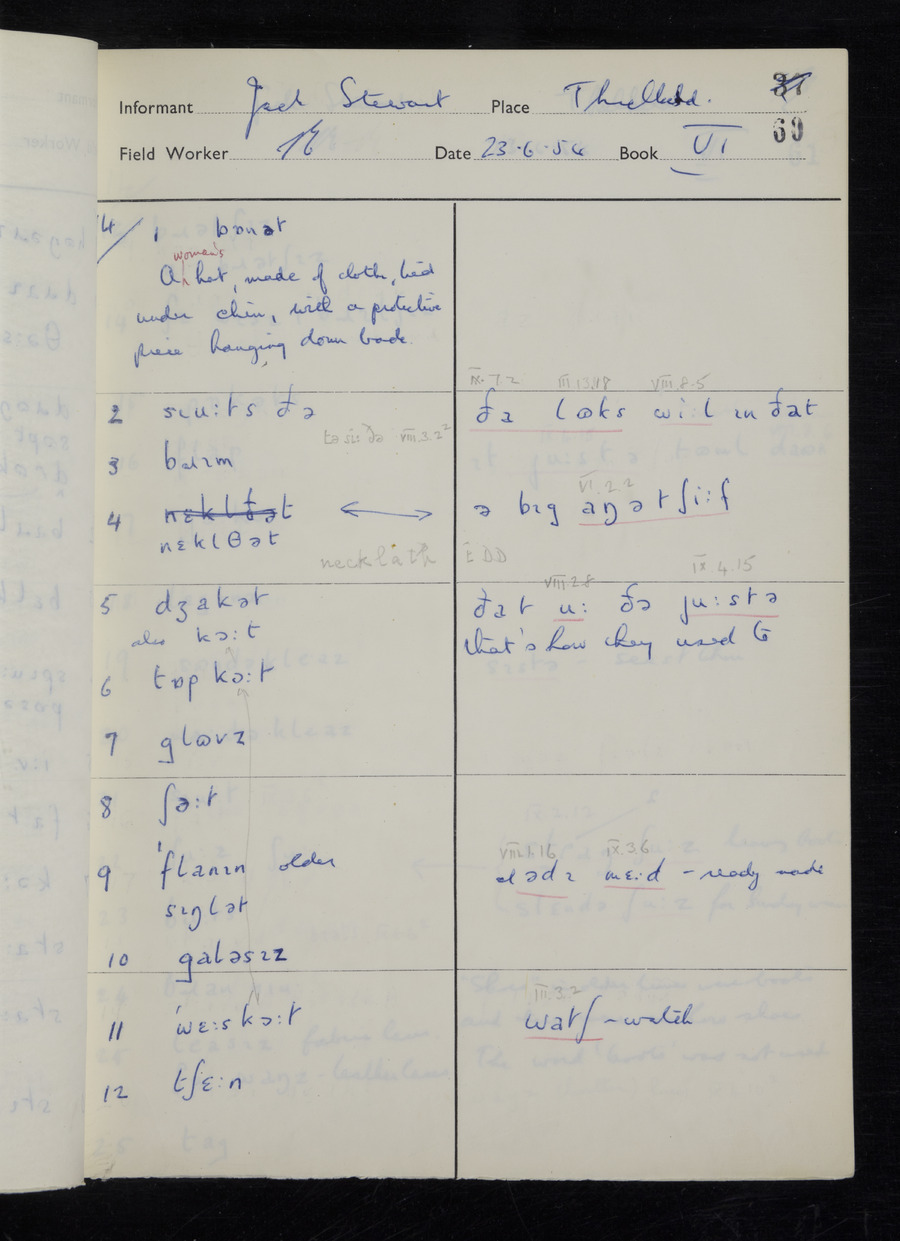 Informant Jack Stewart Place Threlkeld. 37
Field Worker Date 23.6.54 Book VI 60
14/ 1 bɒnət
A woman's hat, made of cloth, tied
under chin, with a protective
piece hanging down back.
IX.7.2 III.13.18 VIII.8.5
2 suːts ðə ðə lɷks wiːl ɪn ðat
tə siː ðə VIII.3.2²
3 baɪm
VI.2.2
4 nɛklðət ↔ ə bɪg aŋətʃiːf
nɛklθət
necklath EDD
VIII.2.8 IX 4.15
5 dʒakət ðat uː ðə juːstə
also kɔːt that's how they used to
6 tɒp kɔːt
7 glɷvz
8 ʃəːt
VIII.1.16 IX.3.6
9 'flanɪn older mɛːd – ready made
sɪŋlət
10 galəsɪz
III.3.2
11 'wɛːskɔːt watʃ – watch
12 tʃɛːn